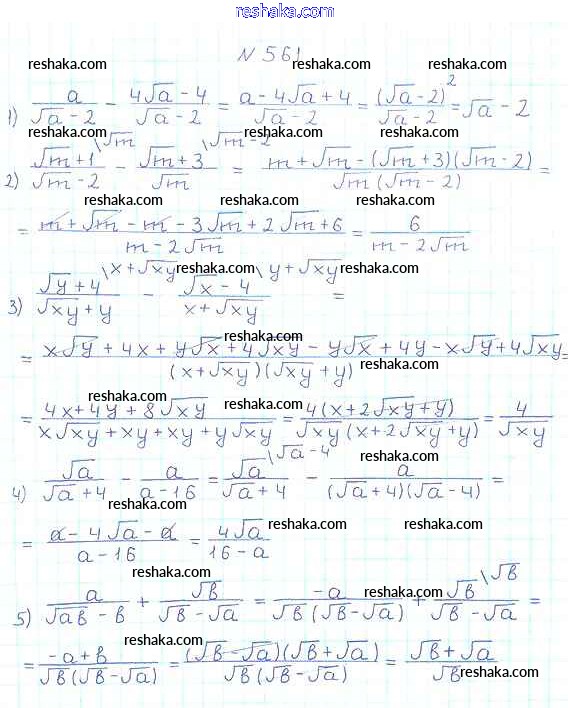 reshaka.com
N 561
reshaka.com reshaka.com reshaka.com
1) a/(√a - 2) - (4√a - 4)/(√a - 2) = (a - 4√a + 4)/(√a - 2) = (√a - 2)²/(√a - 2) = √a - 2
reshaka.com reshaka.com reshaka.com
2) (√m + 1)/(√m - 2) \√m - (√m + 3)/√m \√m - 2 = (m + √m - (√m + 3)(√m - 2))/(√m (√m - 2)) =
reshaka.com reshaka.com reshaka.com
= (m + √m - m - 3√m + 2√m + 6)/(m - 2√m) = 6/(m - 2√m)
reshaka.com reshaka.com
3) (√y + 4)/(√xy + y) \x + √xy - (√x - 4)/(x + √xy) \y + √xy =
reshaka.com
= (x√y + 4x + y√x + 4√xy - y√x + 4y - x√y + 4√xy)/((x + √xy)(√xy + y)) =
reshaka.com reshaka.com
reshaka.com reshaka.com
= (4x + 4y + 8√xy)/(x√xy + xy + xy + y√xy) = 4(x + 2√xy + y)/(√xy (x + 2√xy + y)) = 4/√xy
reshaka.com reshaka.com
4) √a/(√a + 4) - a/(a - 16) = √a/(√a + 4) \√a - 4 - a/((√a + 4)(√a - 4)) =
reshaka.com
reshaka.com reshaka.com
= (a - 4√a - a)/(a - 16) = 4√a/(16 - a)
reshaka.com reshaka.com
5) a/(√ab - b) + √b/(√b - √a) = -a/(√b (√b - √a)) + √b/(√b - √a) \√b =
reshaka.com reshaka.com
reshaka.com reshaka.com
= (-a + b)/(√b (√b - √a)) = (√b - √a)(√b + √a)/(√b (√b - √a)) = (√b + √a)/√b
reshaka.com reshaka.com